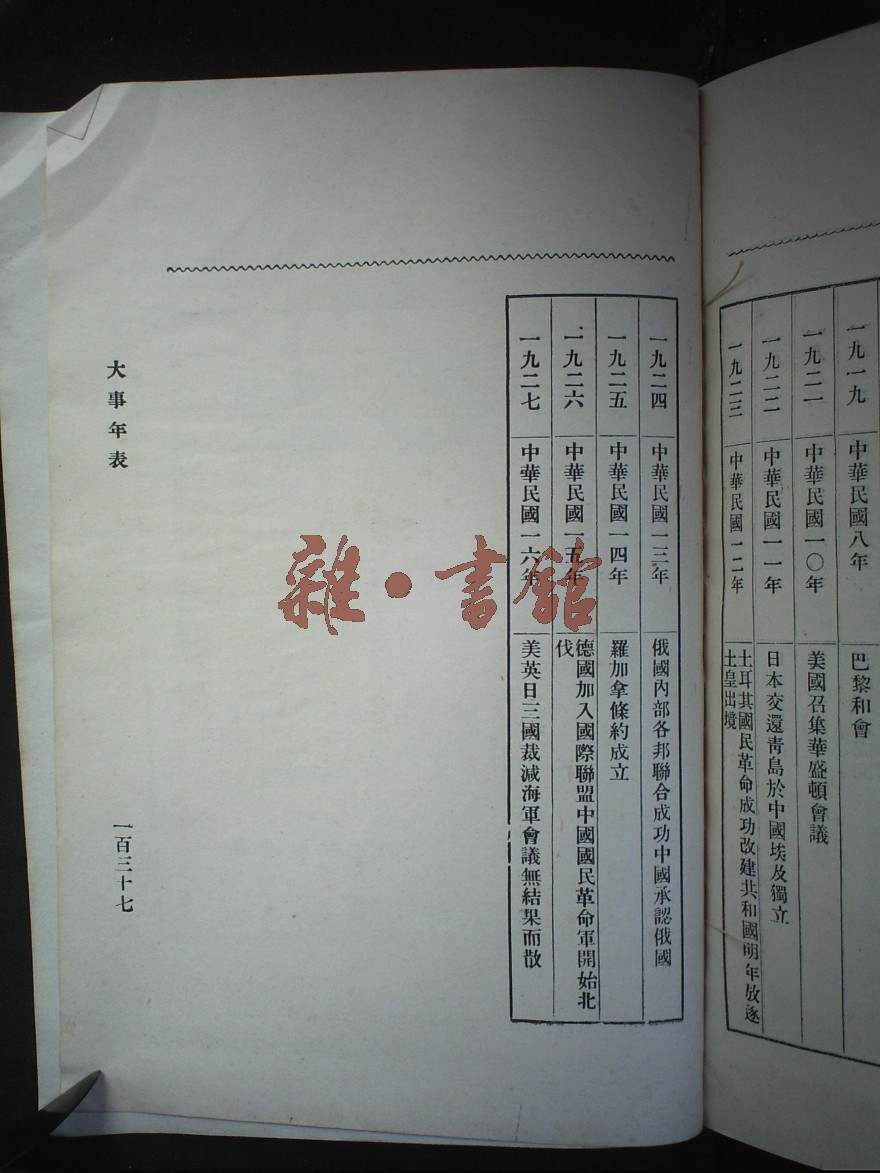 一九一九 中華民國八年 巴黎和會
一九二一 中華民國一〇年 美國召集華盛頓會議
一九二二 中華民國一一年 日本交還靑島於中國埃及獨立
一九二三 中華民國一二年 土耳其國民革命成功改建共和國明年放逐
土皇出境
一九二四 中華民國一三年 俄國內部各邦聯合成功中國承認俄國
一九二五 中華民國一四年 羅加拿條約成立
一九二六 中華民國一五年 德國加入國際聯盟中國國民革命軍開始北
伐
一九二七 中華民國一六年 美英日三國裁減海軍會議無結果而散
大事年表
一百三十七
雜·書館